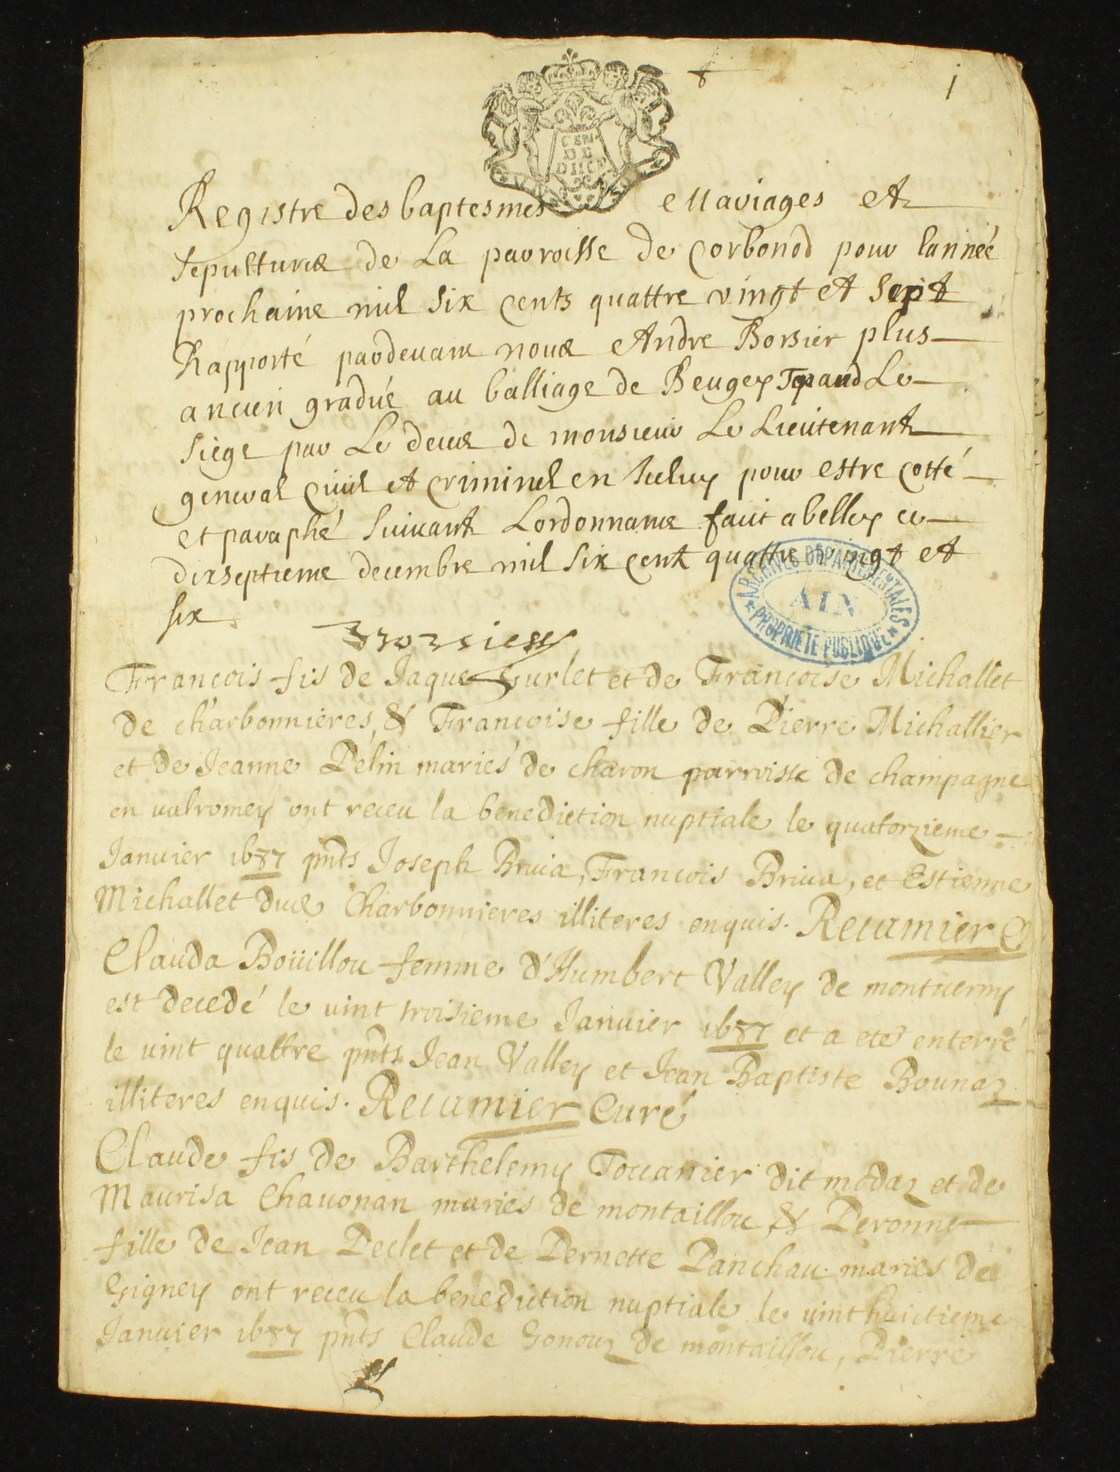 1
GEN
DE
DIION
Registre des baptesmes Mariages et
sepultures de La parroisse de Corbonod pour lannée
prochaine mil six cents quattre vingt et sept
Rapporté pardevant nous Andre Borsier plus
ancien gradué au balliage de Beugey Tenand Le
siege par Le deces de monsieur Le Lieutenant
general civil et criminel en Iceluy pour estre cotté
et paraphé suivant Lordonnance faict a belley ce
dixseptieme decembre mil six cent quattre vingt et
six
Borsier
ARCHIVES DÉPARTEMENTALES
AIN
PROPRIÉTÉ PUBLIQUE
François fis de Jaque Gurlet et de Françoise Michallet
de charbonnieres, & Françoise fille de Pierre Michallier
et de Jeanne Pelin mariés de charon parroisse de champagne
en valromey ont receu la benediction nuptiale le quatorzieme
Janvier 1687 pnts Joseph Bruia, François Bruia, et Estienne
Michallet dud Charbonnieres illiteres enquis. Recumier C
Clauda Boüillou femme d'Humbert Valley de montuerny
est decedé le vint troisieme Janvier 1687 et a eté enterré
le vint quattre pnts Jean Valley et Jean Baptiste Bounaz
illiteres enquis. Recumier Curé
Claude fis de Barthelemy Toccanier dit modaz et de
Maurisa Chavonan mariés de montaillou & Peronne
fille de Jean Peclet et de Pernette Panchau mariés de
Gigney ont receu la benediction nuptiale le vinthuictieme
Janvier 1687 pnts Claude Gonouz de montaillou, Pierre